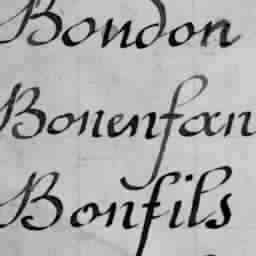 Boudon
Bonenfan
Bonfils